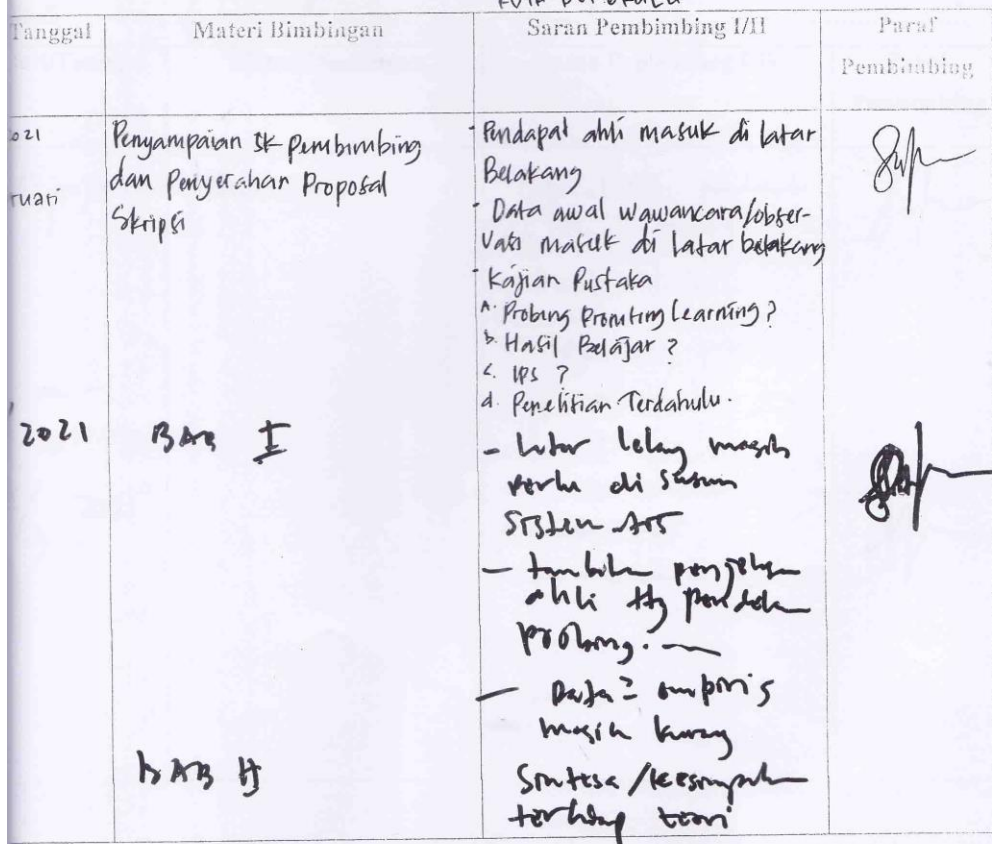 Tanggal
Materi Bimbingan
Saran Pembimbing I/II
Paraf
Pembimbing
2021
ruari
Penyampaian SK Pembimbing
dan Penyerahan Proposal
Skripsi
- Pendapat ahli masuk di latar
Belakang
- Data awal wawancara/obser-
vasi masuk di latar belakang
- Kajian Pustaka
a. Probing Promting Learning?
b. Hasil Belajar?
c. IPS?
d. Penelitian Terdahulu.
2021
BAB I
- Latar masih
perlu di susun
- ahli
probing.
- Data2 empiris
masih kurang
BAB II
Sintesa/kesimpulan
terhadap teori